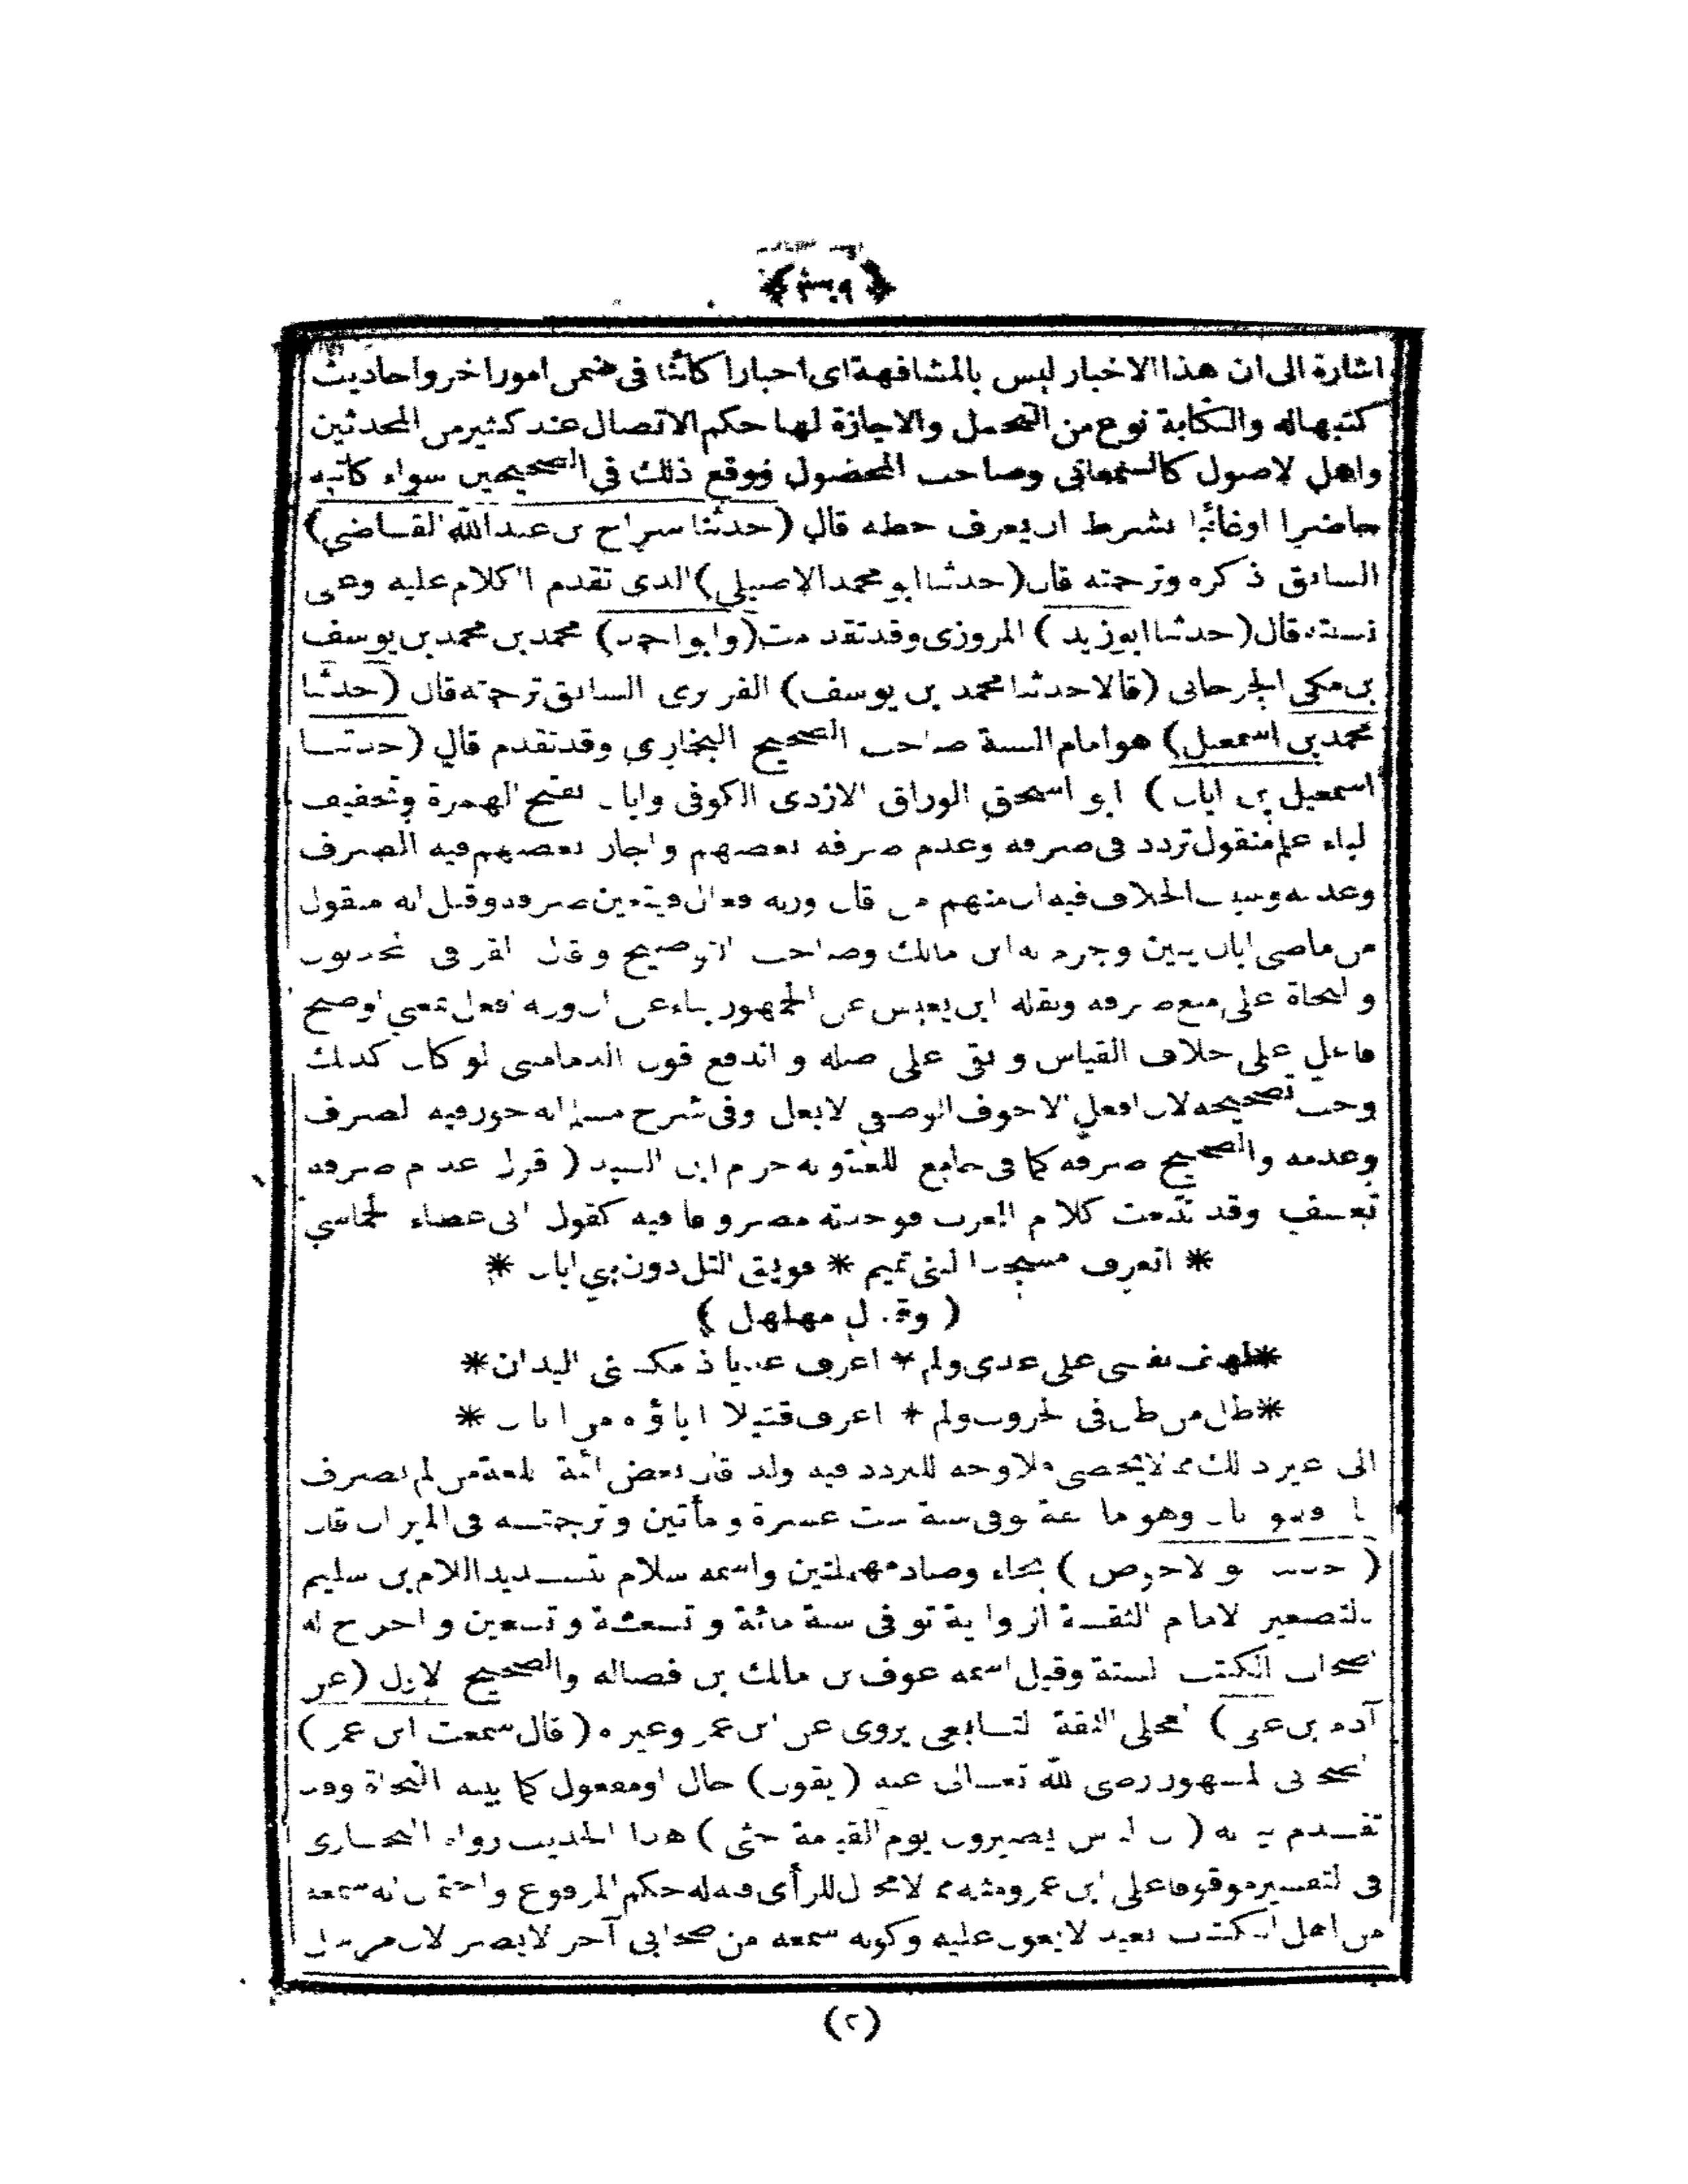 اشارة الى ان هذا الاخبار ليس بالمشافهة اى اخبارا كائنا فى ضمن امور اخر واحاديث
كتبها له والكتابة نوع من التحمل والاجازة لها حكم الاتصال عند كثير من المحدثين
واهل لاصول كالسمعانى وصاحب المحصول ووقع ذلك فى الصحيحين سواء كاتبه
حاضرا اوغائبا بشرط ان يعرف خطه قال (حدثنا سراج بن عبدالله القاضى)
السابق ذكره وترجمته قال (حدثنا ابو محمد الاصيلى) الذى تقدم الكلام عليه وعى
نسبته قال (حدثنا ابوزيد) المروزى وقد تقدمت (وابو احمد) محمد بن محمد بن يوسف
بن مكى الجرجانى (قالا حدثنا محمد بن يوسف) الفربرى السابق ترجمته قال (حدثنا
محمد بن اسمعيل) هو امام السنة صاحب الصحيح البخارى وقد تقدم قال (حدثنا
اسمعيل بن ابان) ابو اسحق الوراق الازدى الكوفى وابان بفتح الهمزة وتخفيف
لباء علم منقول تردد فى صرفه وعدم صرفه بعضهم واجاز بعضهم فيه الصرف
وعدمه وسبب الخلاف فيه ان منهم من قال وزنه فعال فيتعين صرفه وقيل انه منقول
من ماضى ابان يبين وجزم به ابن مالك وصاحب التوضيح وقال القرفى المحدثون
والنحاة على منع صرفه ونقله ابن يعيش عن الجمهور بناء عن ان وزنه افعل بمعنى اوضح
فاعل على خلاف القياس وبقى على صله واندفع قول الدمامينى لو كان كذلك
وجب تصحيحه لان افعل الاجوف الوصفى لايعل وفى شرح مسلم انه جوز فيه لصرف
وعدمه والصحيح صرفه كما فى جامع اللغة وبه جزم ابن السيد (قول عدم صرفه
تعسف وقد تتبعت كلام العرب فوجدته مصروفا فيه كقول ابى عطاء
* اتعرف مسجدا لبنى تميم * فويق التل دون بنى ابان *
(وقال مهلهل)
*لهف نفسى على عدى ولم * اعرف عديا اذ مكنتنى اليدان*
*طل من طل فى لحروب ولم * اعرف قتيلا اباؤه من ابان *
الى غير ذلك مما لايحصى فلا وجه للتردد فيه ولذ قال بعض ائمة للغة من لم يصرف
ابان وهو جماعة توفى سنة ست عشرة ومأتين وترجمته فى الميزان قال
(حدثنا ابو لاحوص) بحاء وصاد مهملتين واسمه سلام بتشديد اللام بن سليم
بلتصغير لامام الثقة لرواية توفى سنة مائة وتسعة وتسعين واخرج له
اصحاب الكتب لستة وقيل اسمه عوف بن مالك بن فضالة والصحيح لاول (عن
آدم بن على) العجلى الثقة لتابعى يروى عن ابن عمر وغيره (قال سمعت ابن عمر)
الصحابى لمشهور رضى لله تعالى عنه (يقول) حال اومفعول كما بينه النحاة وقد
تقدم بيانه (ان الناس يصيرون يوم القيمة جثى) هذا الحديث رواه البخارى
فى لتفسير موقوفا على ابن عمر ومثله مما لا مجال للرأى فيه له حكم المرفوع واحتمال انه سمعه
من اهل الكتاب بعيد لايعول عليه وكونه سمعه من صحابى آخر لايضر لان مرسل
(٢)